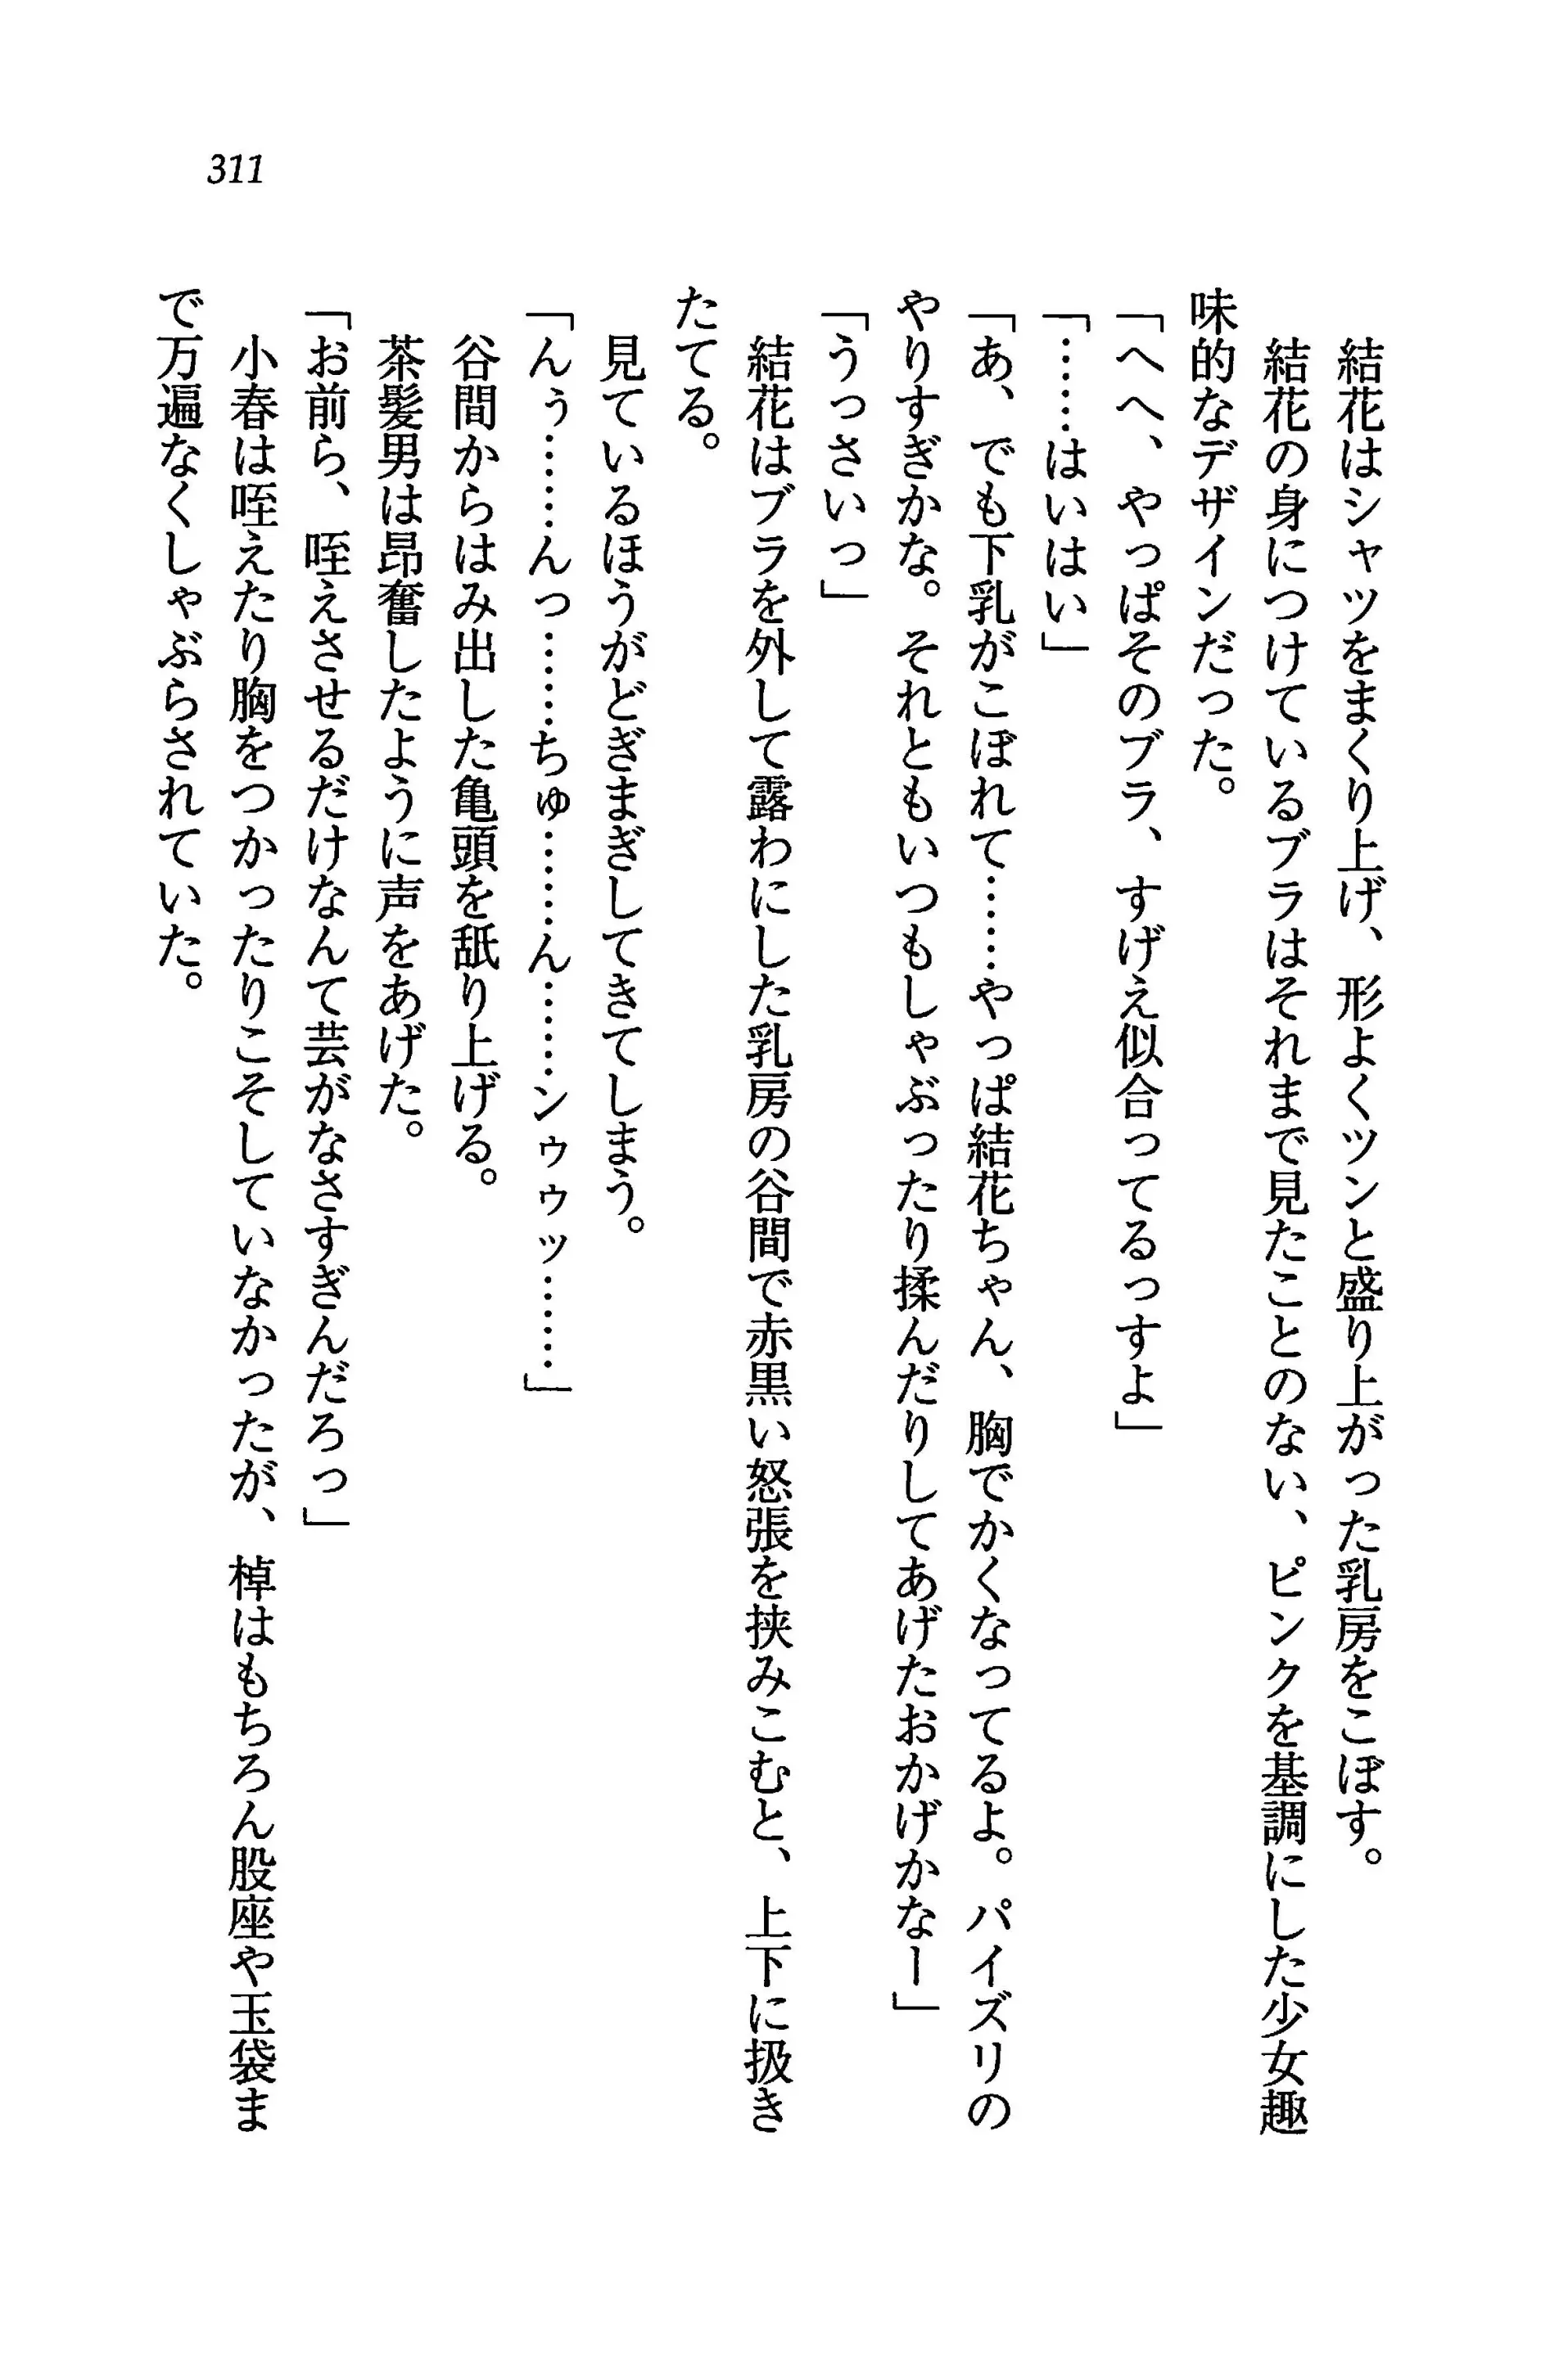 311
結花はシャツをまくり上げ、形よくツンと盛り上がった乳房をこぼす。
結花の身につけているブラはそれまで見たことのない、ピンクを基調にした少女趣
味的なデザインだった。
「へへ、やっぱそのブラ、すげえ似合ってるっすよ」
「……はいはい」
「あ、でも下乳がこぼれて……やっぱ結花ちゃん、胸でかくなってるよ。パイズリの
やりすぎかな。それともいつもしゃぶったり揉んだりしてあげたおかげかなー」
「うっさいっ」
結花はブラを外して露わにした乳房の谷間で赤黒い怒張を挟みこむと、上下に扱き
たてる。
見ているほうがどぎまぎしてきてしまう。
「んぅ……んっ……ちゅ……ん……ンゥゥッ……」
谷間からはみ出した亀頭を舐り上げる。
茶髪男は昂奮したように声をあげた。
「お前ら、咥えさせるだけなんて芸がなさすぎんだろっ」
小春は咥えたり胸をつかったりこそしていなかったが、棹はもちろん股座や玉袋ま
で万遍なくしゃぶらされていた。